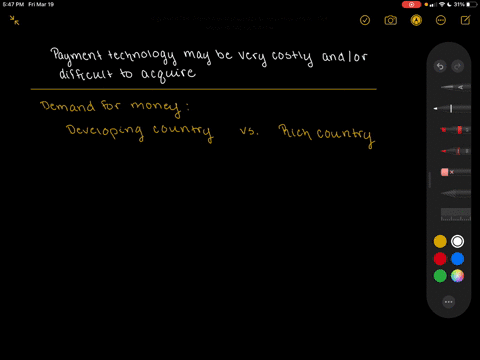 5:47 PM Fri Mar 19
31%
Payment technology may be very costly and/or
difficult to acquire
Demand for money:
Developing country vs. Rich country